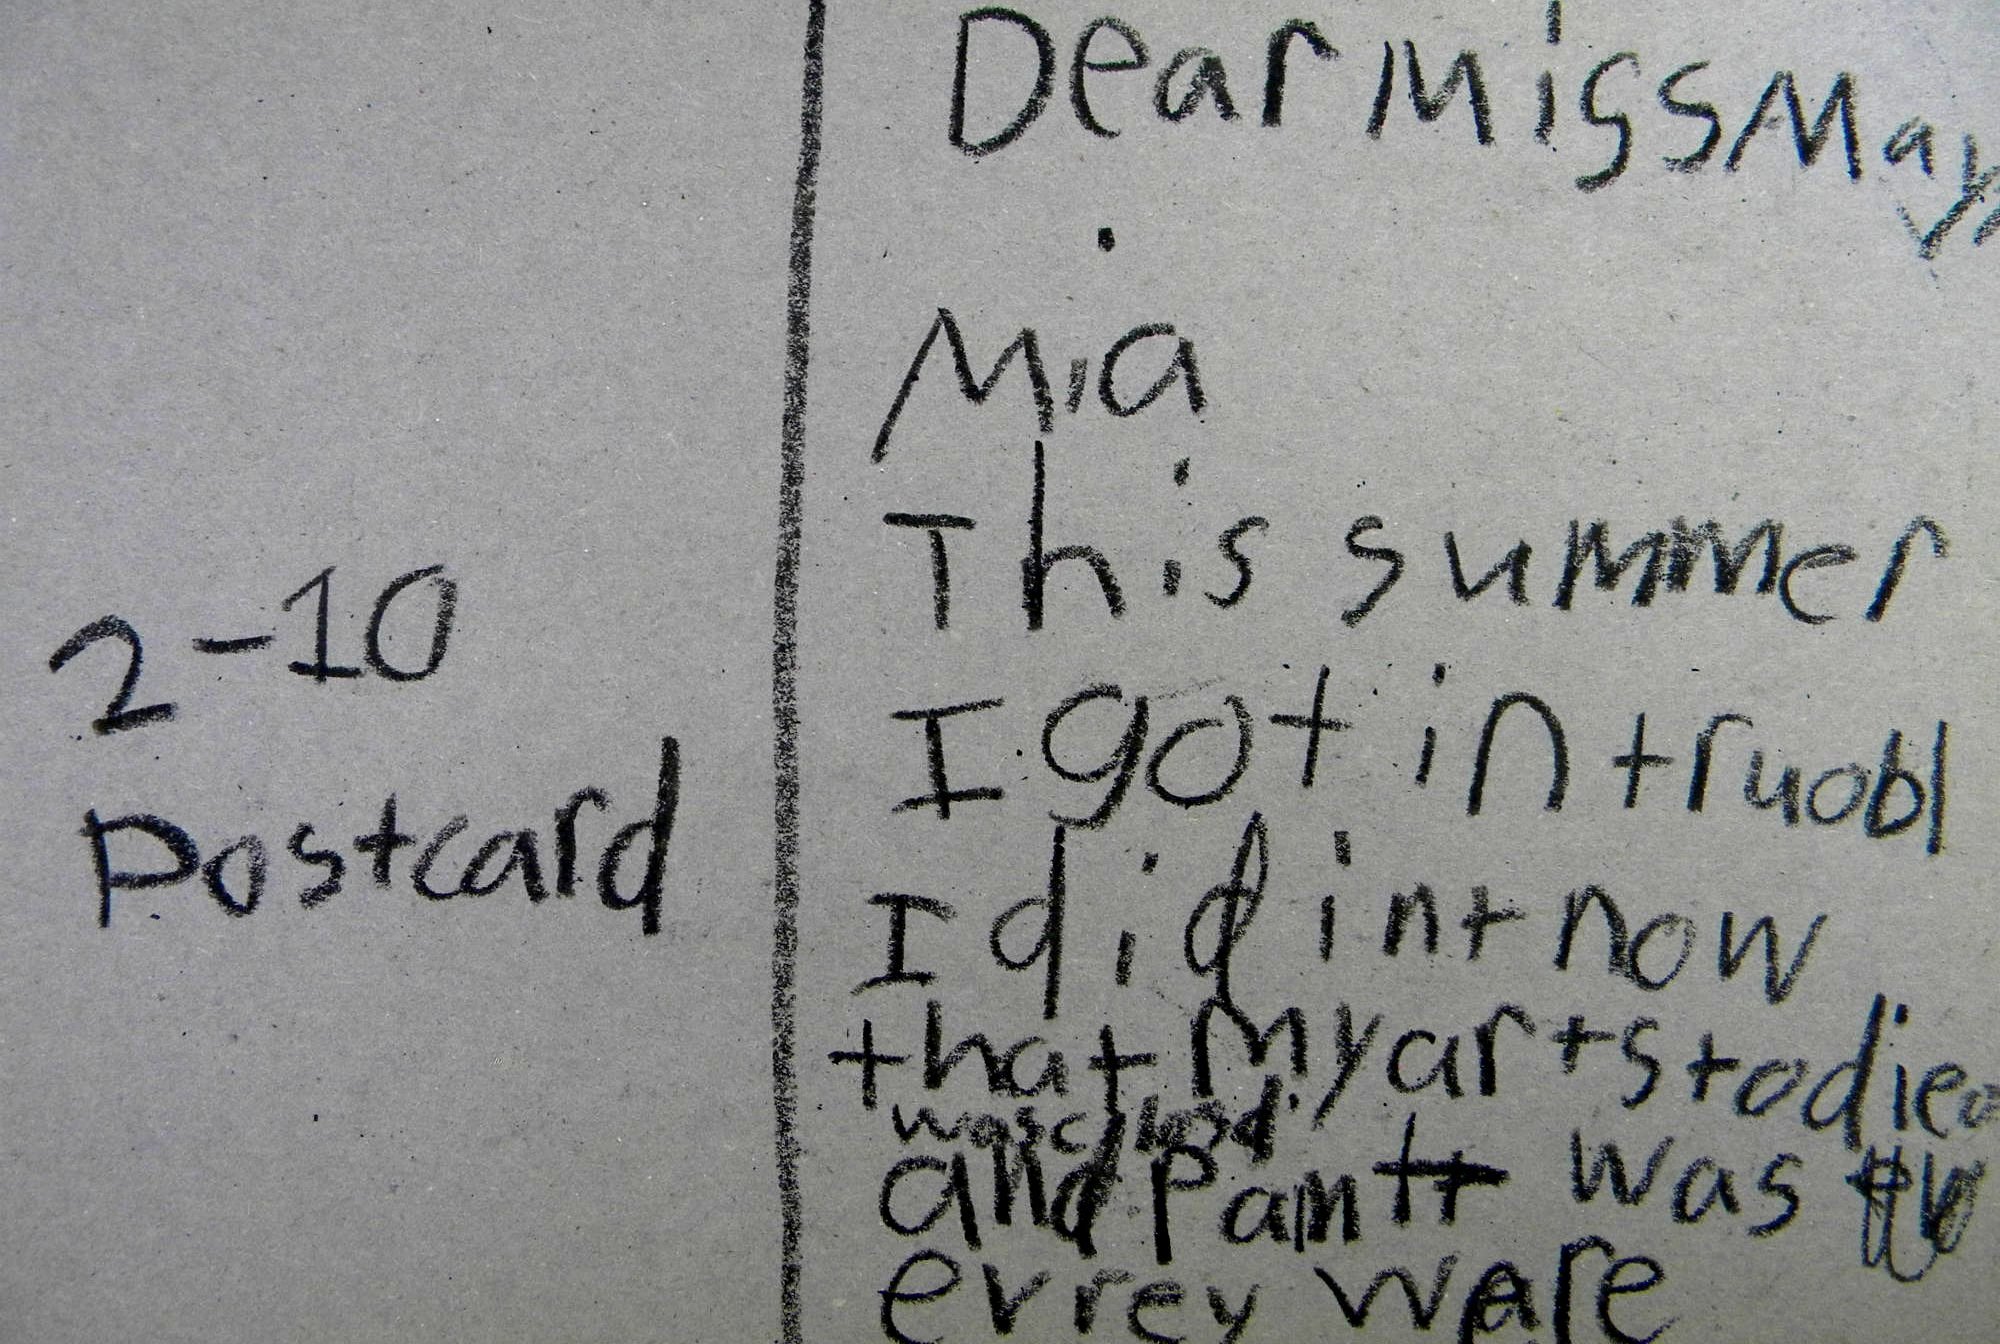 2-10
Postcard
Dear Miss May,
Mia
This summer
I got in truobl
I didint now
that my art stodieo
was closd.
and Paint was
evrey ware